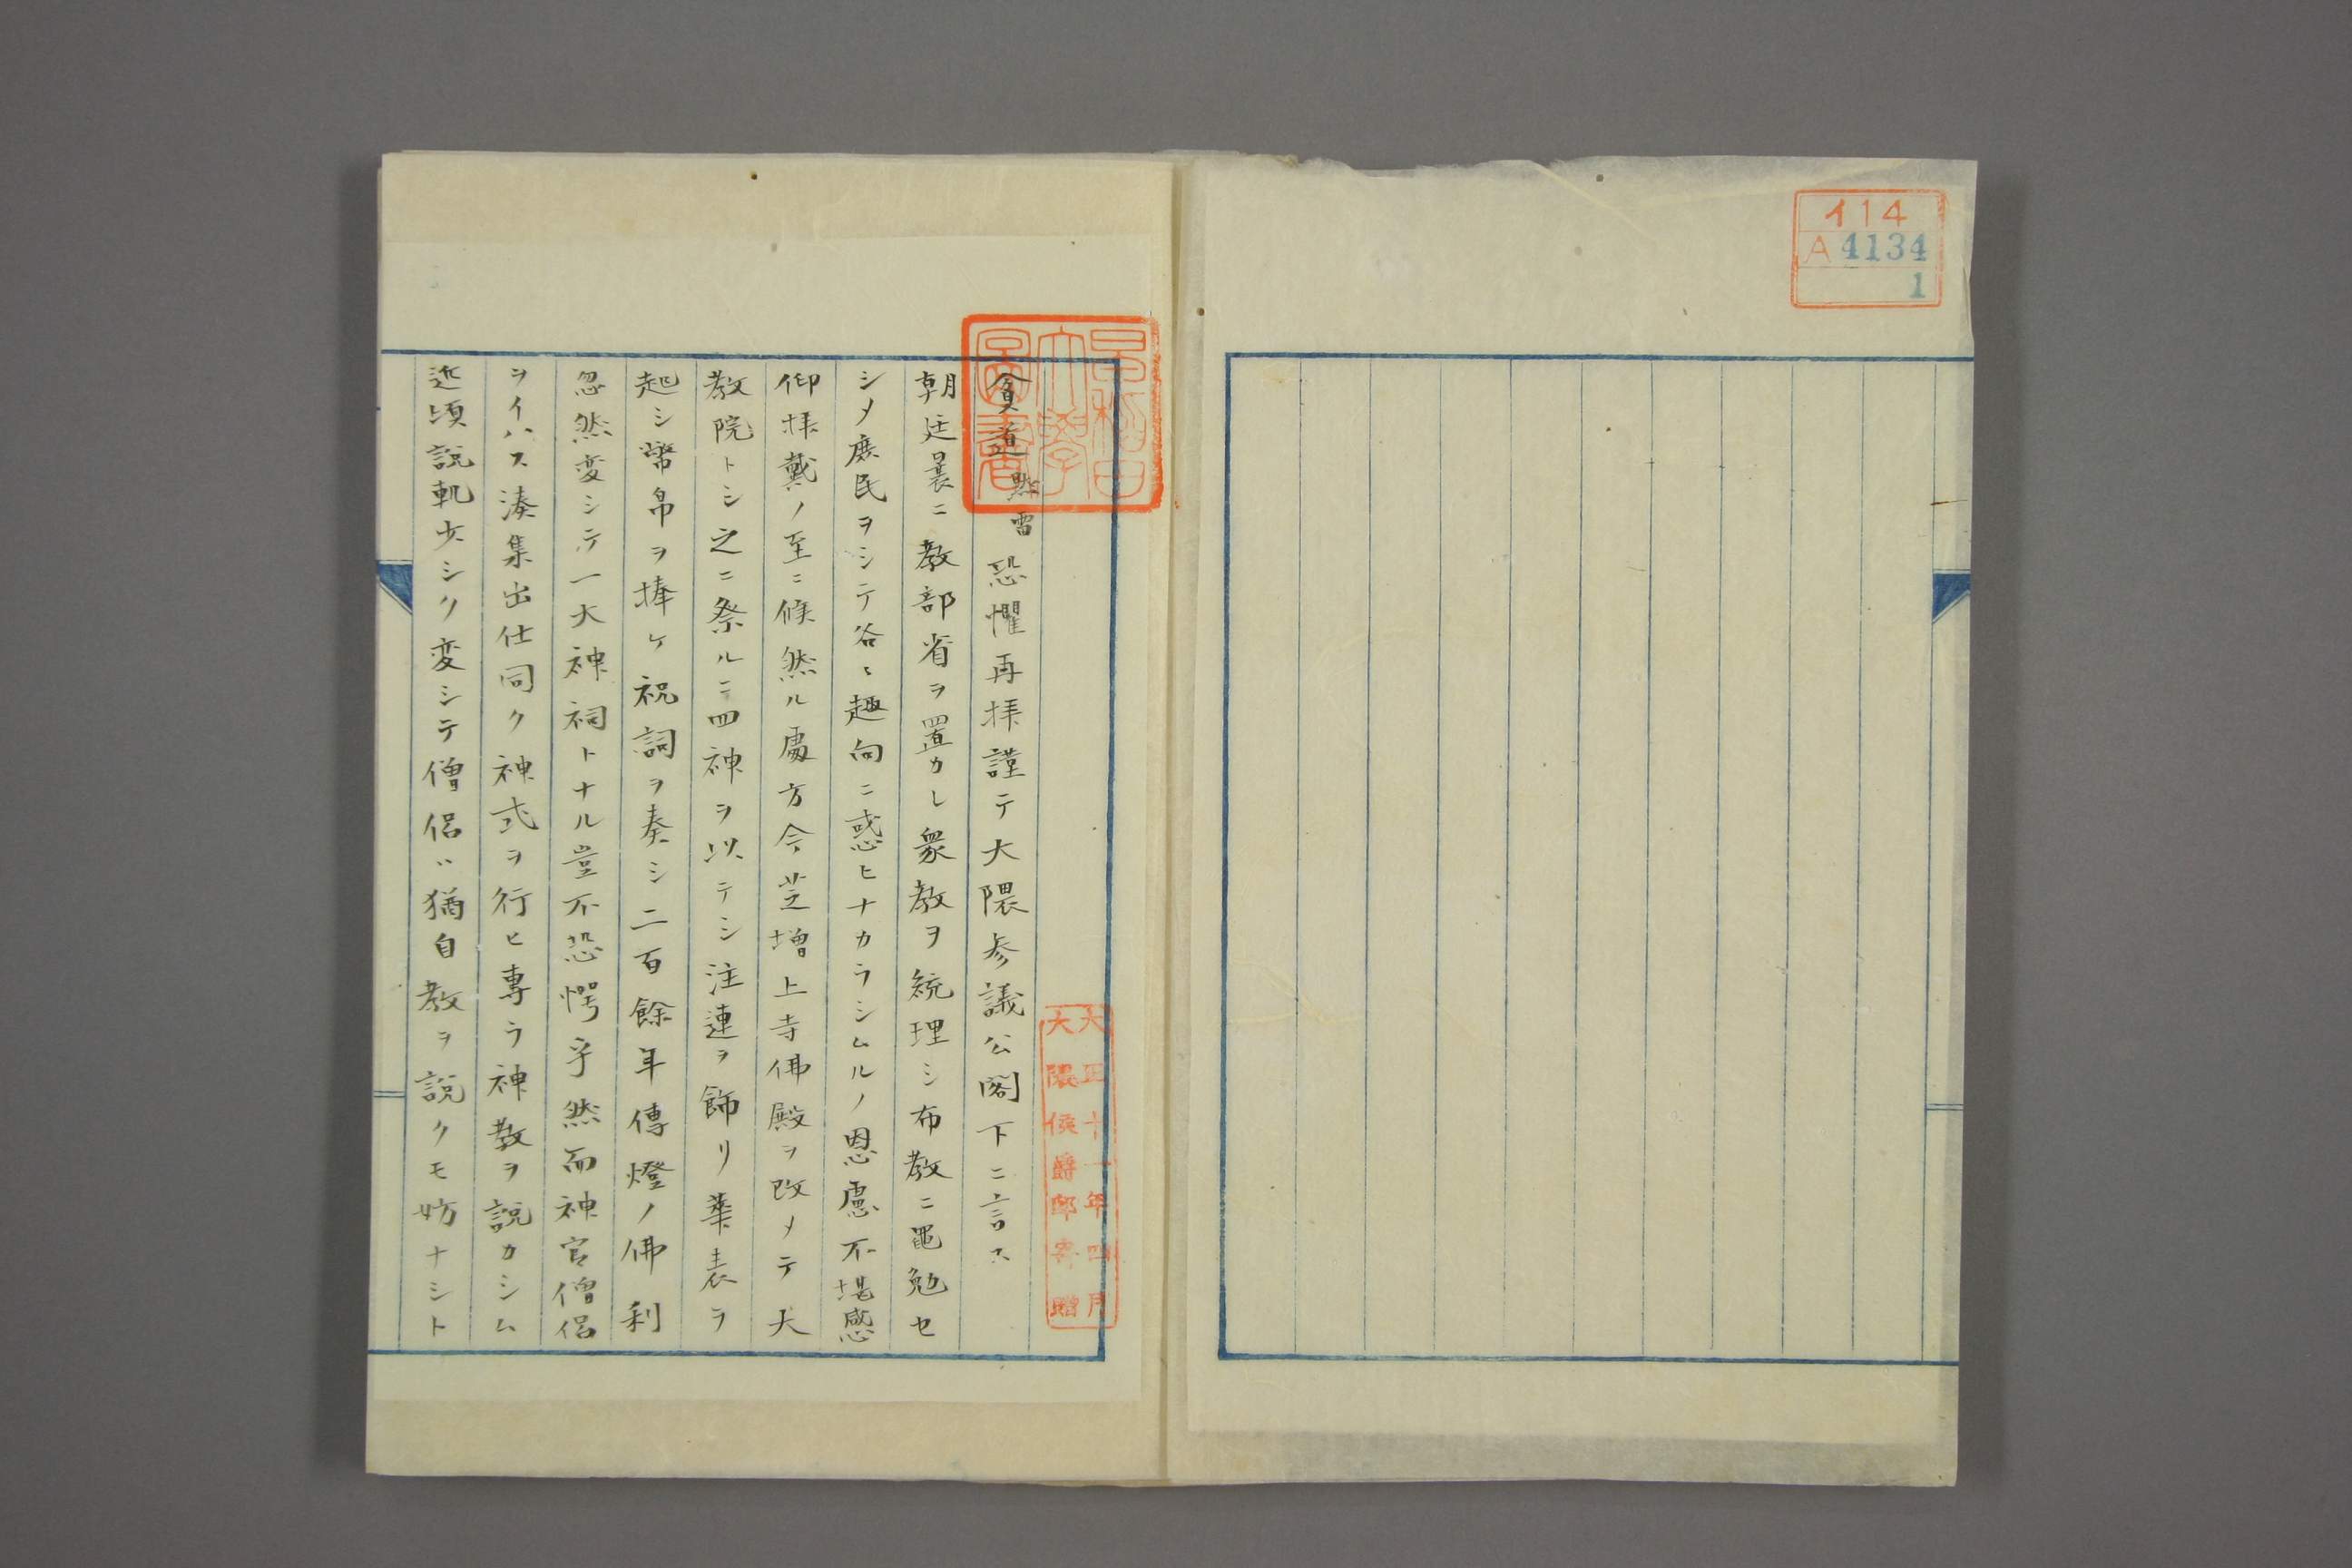 イ14
A4134
1
早稲田
大學
圖書
大正十一年四月
大隈侯爵邸寄贈
貧道黙雷恐懼再拝謹テ大隈参議公閣下ニ言ス
朝廷曩ニ教部省ヲ置カレ衆教ヲ統理シ布教ニ黽勉セ
シメ庶民ヲシテ各々趣向ニ惑ヒナカラシムルノ恩慮不堪感
仰拝戴ノ至ニ候然ル處方今芝増上寺佛殿ヲ改メテ大
教院トシ之ニ祭ルニ四神ヲ以テシ注連ヲ飾リ華表ヲ
起シ幣帛ヲ捧ケ祝詞ヲ奏シ二百餘年傳燈ノ佛利
忽然変シテ一大神祠トナル豈不恐愕乎然而神官僧侶
ヲイハス湊集出仕同ク神式ヲ行ヒ專ラ神教ヲ説カシム
近頃説軌少シク変シテ僧侶ハ猶自教ヲ説クモ妨ナシト